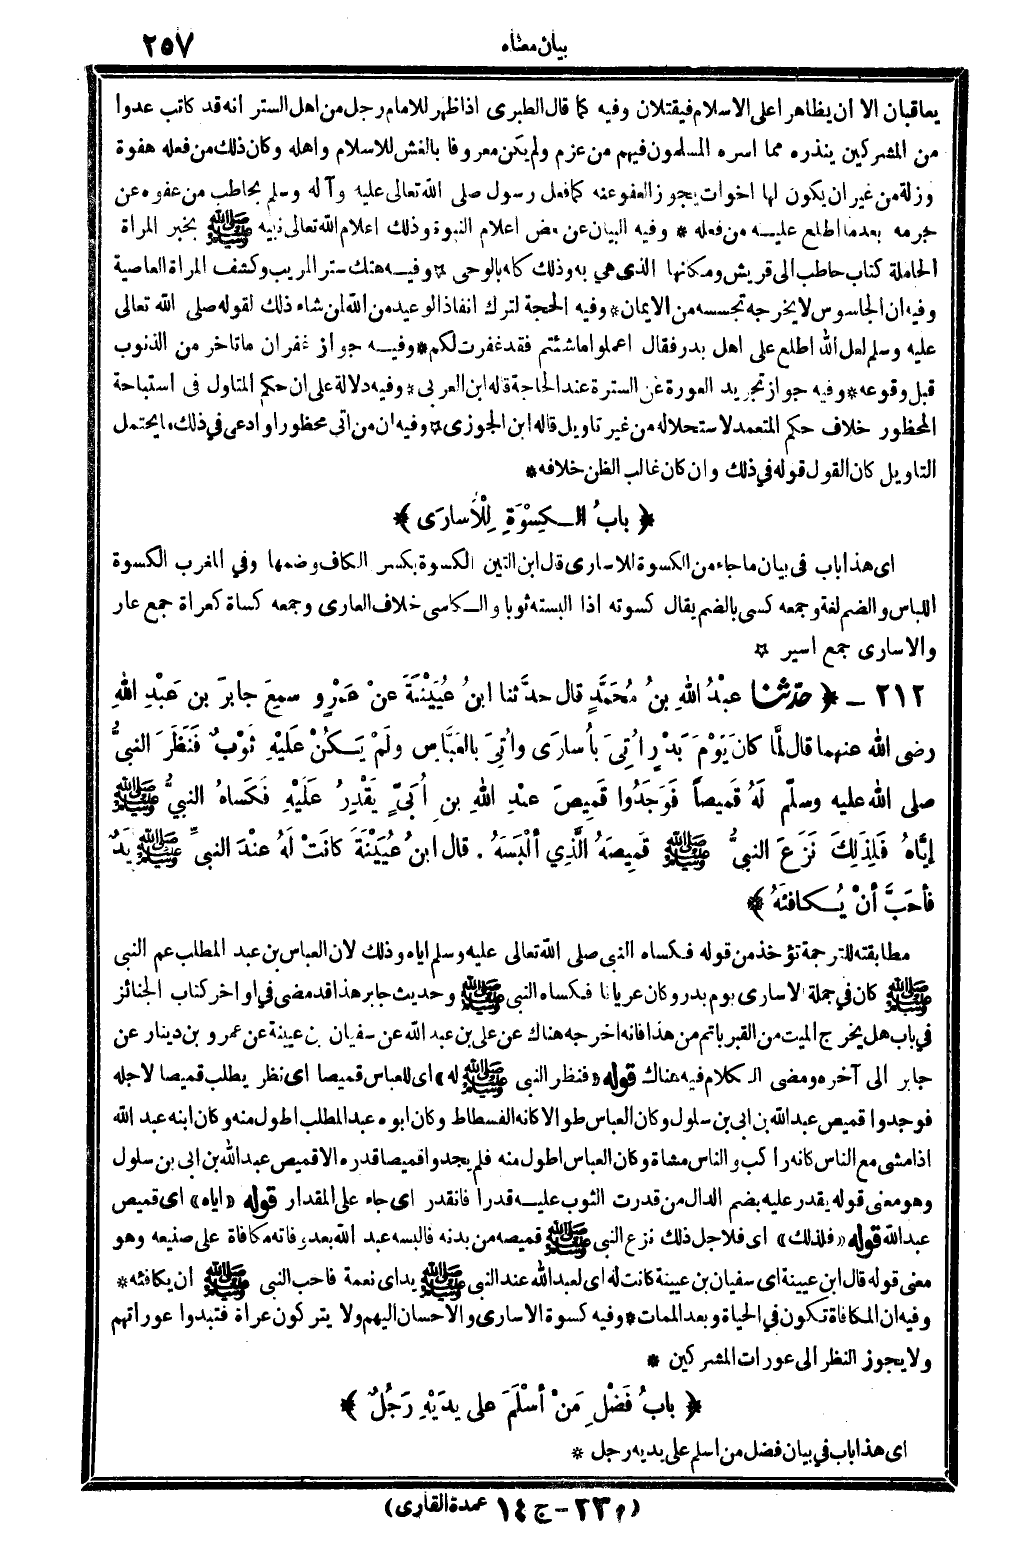 بيان معناه ٢٥٧
يعاقبان الا ان يظاهر اعلى الاسلام فيقتلان وفيه كما قال الطبرى اذا ظهر للامام رجل من اهل الستر انه قد كاتب عدوا
من المشركين ينذره مما اسره المسلمون فيهم من عزم ولم يكن معروفا بالغش للاسلام واهله وكان ذلك من فعله هفوة
وزلة من غير ان يكون لها اخوات يجوز العفو عنه كما فعل رسول صلى الله تعالى عليه وآله وسلم بحاطب من عفوه عن
جرمه بعد ما اطلع عليه من فعله * وفيه البيان عن بعض اعلام النبوة وذلك اعلام الله تعالى نبيه ﷺ بخبر المرأة
الحاملة كتاب حاطب الى قريش ومكانها الذى هي به وذلك كله بالوحى * وفيه هتك ستر المريب وكشف المرأة العاصية
وفيه ان الجاسوس لا يخرجه تجسسه من الايمان * وفيه الحجة لترك انفاذ الوعيد من الله لمن شاء ذلك لقوله صلى الله تعالى
عليه وسلم لعل الله اطلع على اهل بدر فقال اعملوا ما شئتم فقد غفرت لكم * وفيه جواز غفران ما تاخر من الذنوب
قبل وقوعه * وفيه جواز تجريد العورة عن السترة عند الحاجة قاله ابن العربى * وفيه دلالة على ان حكم المتاول فى استباحة
المحظور خلاف حكم المتعمد لاستحلاله من غير تاويل قاله ابن الجوزى * وفيه ان من اتى محظورا وادعى فى ذلك ما يحتمل
التاويل كان القول قوله في ذلك وان كان غالب الظن خلافه *
﴿ بابُ الكِسْوَةِ لِلْأُسارَى ﴾
اى هذا باب فى بيان ما جاء من الكسوة للاسارى قال ابن التين الكسوة بكسر الكاف وضمها وفي المغرب الكسوة
اللباس والضم لغة وجمعه كسى بالضم يقال كسوته اذا البسته ثوبا والكاسى خلاف العارى وجمعه كساة كعراة جمع عار
والاسارى جمع اسير *
٢١٢ - ﴿ حدّثنا عبْدُ اللهِ بنُ مُحَمَّدٍ قال حدَّثنا ابنُ عُيَيْنَةَ عنْ عَمْرٍو سمِعَ جابرَ بن عَبْدِ اللهِ
رضى الله عنهما قال لمَّا كانَ يَوْمَ بَدْرٍ اُتِىَ بأُسارَى واُتِىَ بالعَبَّاسِ ولَمْ يَكُنْ عَلَيْهِ ثَوْبٌ فَنَظَرَ النبيُّ
صلى الله عليه وسلّم لَهُ قَمِيصاً فَوَجَدُوا قَمِيصَ عبْدِ اللهِ بنِ اُبَىٍّ يَقْدِرُ عَلَيْهِ فَكَساهُ النبيُّ ﷺ
إيَّاهُ فَلِذَلِكَ نَزَعَ النبيُّ ﷺ قَمِيصَهُ الَّذِي ألْبَسَهُ . قال ابنُ عُيَيْنَةَ كانَتْ لَهُ عنْدَ النبيِّ ﷺ يَدٌ
فأحَبَّ أنْ يُكافئَهُ ﴾
مطابقته للترجمة تؤخذ من قوله فكساه النبى صلى الله تعالى عليه وسلم اياه وذلك لان العباس بن عبد المطلب عم النبي
ﷺ كان في جملة الاسارى يوم بدر وكان عريانا فكساه النبى ﷺ وحديث جابر هذا قد مضى في اواخر كتاب الجنائز
في باب هل يخرج الميت من القبر باتم من هذا فانه اخرجه هناك عن على بن عبد الله عن سفيان بن عيينة عن عمرو بن دينار عن
جابر الى آخره ومضى الكلام فيه هناك قوله «فنظر النبى ﷺ له» اى للعباس قميصا اى نظر يطلب قميصا لاجله
فوجدوا قميص عبد الله بن ابى بن سلول وكان العباس طوالا كانه الفسطاط وكان ابوه عبد المطلب اطول منه وكان ابنه عبد الله
اذا مشى مع الناس كانه راكب والناس مشاة وكان العباس اطول منه فلم يجدوا قميصا قدره الا قميص عبد الله بن ابى بن سلول
وهو معنى قوله يقدر عليه بضم الدال من قدرت الثوب عليه قدرا فانقدر اى جاء على المقدار قوله «اياه» اى قميص
عبد الله قوله «فلذلك» اى فلاجل ذلك نزع النبى ﷺ قميصه من بدنه فالبسه عبد الله بعد وفاته مكافاة على صنيعه وهو
معنى قوله قال ابن عيينة اى سفيان بن عيينة كانت له اى لعبد الله عند النبى ﷺ يد اى نعمة فاحب النبى ﷺ أن يكافئه *
وفيه ان المكافاة تكون في الحياة وبعد الممات * وفيه كسوة الاسارى والاحسان اليهم ولا يتركون عراة فتبدوا عوراتهم
ولا يجوز النظر الى عورات المشركين *
﴿ بابُ فَضْلِ مَنْ أسْلَمَ على يدَيْهِ رَجُلٌ ﴾
اى هذا باب في بيان فضل من اسلم على يديه رجل *
(م ٢٣ - ج ١٤ عمدة القارى)